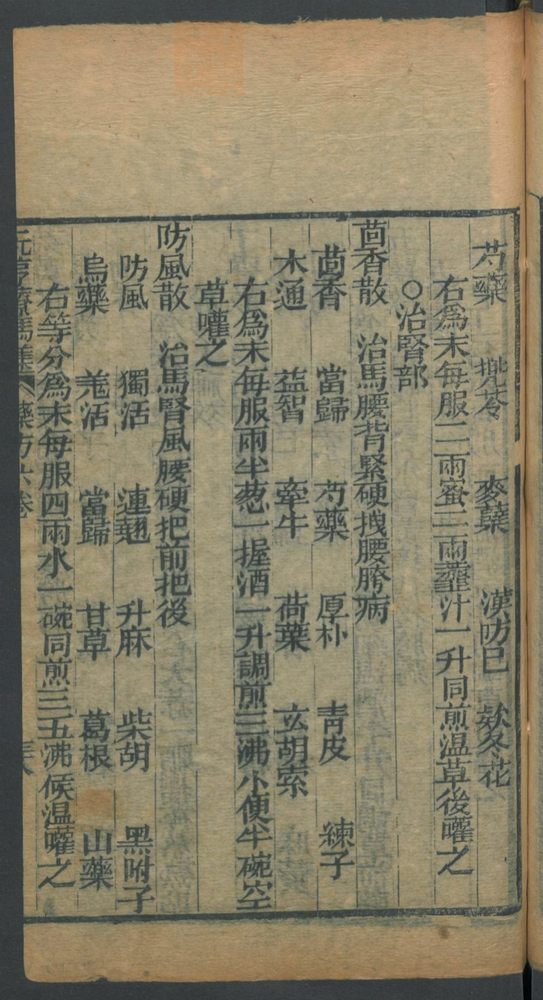 芍藥 兠苓 麥蘖 漢防巳 欵冬花
右為末每服二兩蜜二兩虀汁一升同煎温草後嚾之
○治腎部
茴香散 治馬腰背緊硬拽腰胯病
茴香 當歸 芍藥 厚朴 青皮 練子
木通 益智 牽牛 荷葉 玄胡索
右為末每服兩半葱一握酒一升調煎三沸小便半碗空
草嚾之
防風散 治馬腎風腰硬把前把後
防風 獨活 連翹 升麻 柴胡 黑附子
烏藥 羌活 當歸 甘草 葛根 山藥
右等分為末每服四兩水一碗同煎三五沸候温嚾之
元亨療馬集 藥方六卷